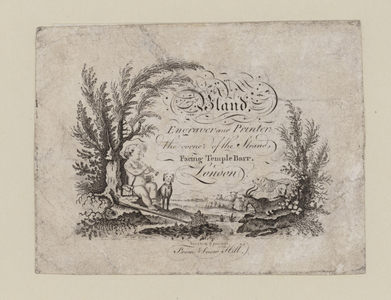 Bland,
Engraver and Printer,
The corner of the Strand,
Facing Temple Barr,
London
From Snow Hill.